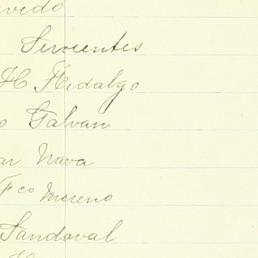 evedo
Sirvientes
H Hidalgo
o Galvan
ar Nava
Fco Moreno
Sandoval